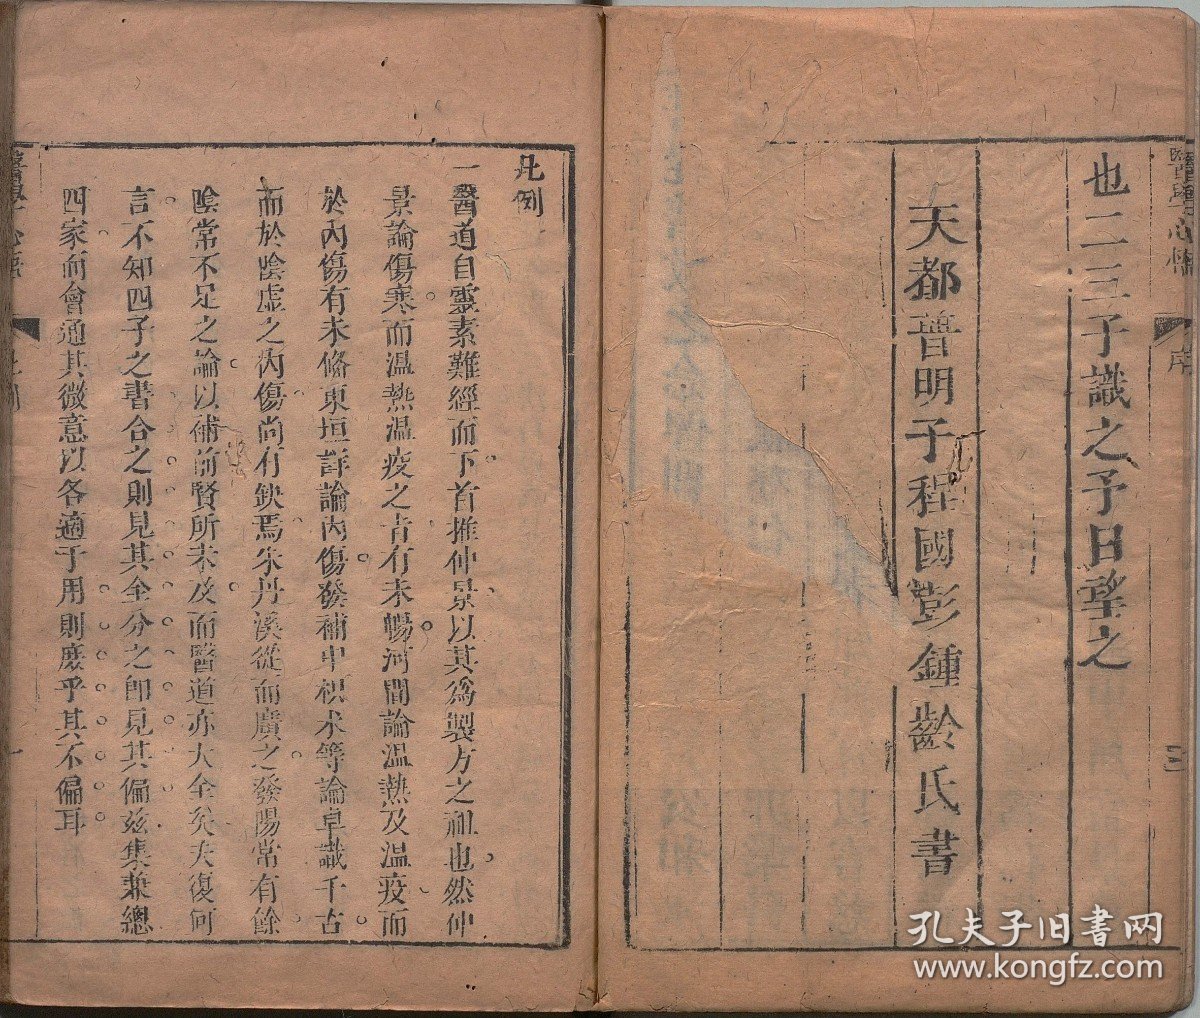 醫學心悟
序
三
也二三子識之予日望之
天都普明子程國彭鍾齡氏書
凡例
一醫道自靈素難經而下首推仲景以其為製方之祖也然仲
景論傷寒而温熱温疫之旨有未暢河間論温熱及温疫而
於內傷有未備東垣詳論內傷發補中枳术等論卓識千古
而於陰虛之內傷尚有缺焉朱丹溪從而廣之發陽常有餘
陰常不足之論以補前賢所未及而醫道亦大全矣夫復何
言不知四子之書合之則見其全分之卽見其偏兹集兼總
四家而會通其微意以各適于用則庶乎其不偏耳
孔夫子旧书网
www.kongfz.com